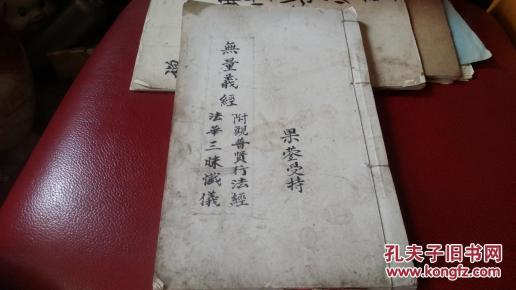 無量義經
附觀普賢行法經
法華三昧懺儀
果蓉受持
孔夫子旧书网
www.kongfz.com